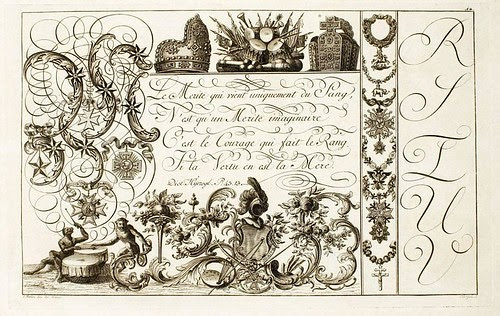 Le Merite qui vient uniquement du Sang,
N'est qu'un Merite imaginaire
C'est le Courage qui fait le Rang,
Si la Vertu en est la Mere.
R
S
T
U
V